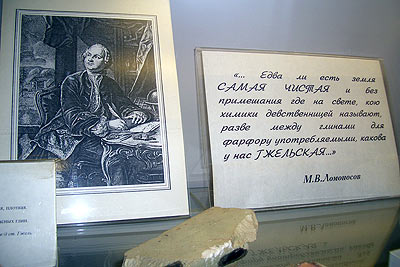 «... Едва ли есть земля
САМАЯ ЧИСТАЯ и без
примешания где на свете, кою
химики девственницей называют,
разве между глинами для
фарфору употребляемыми, какова
у нас ГЖЕЛЬСКАЯ...»
М.В.Ломоносов
плотная
глин.
Гжель